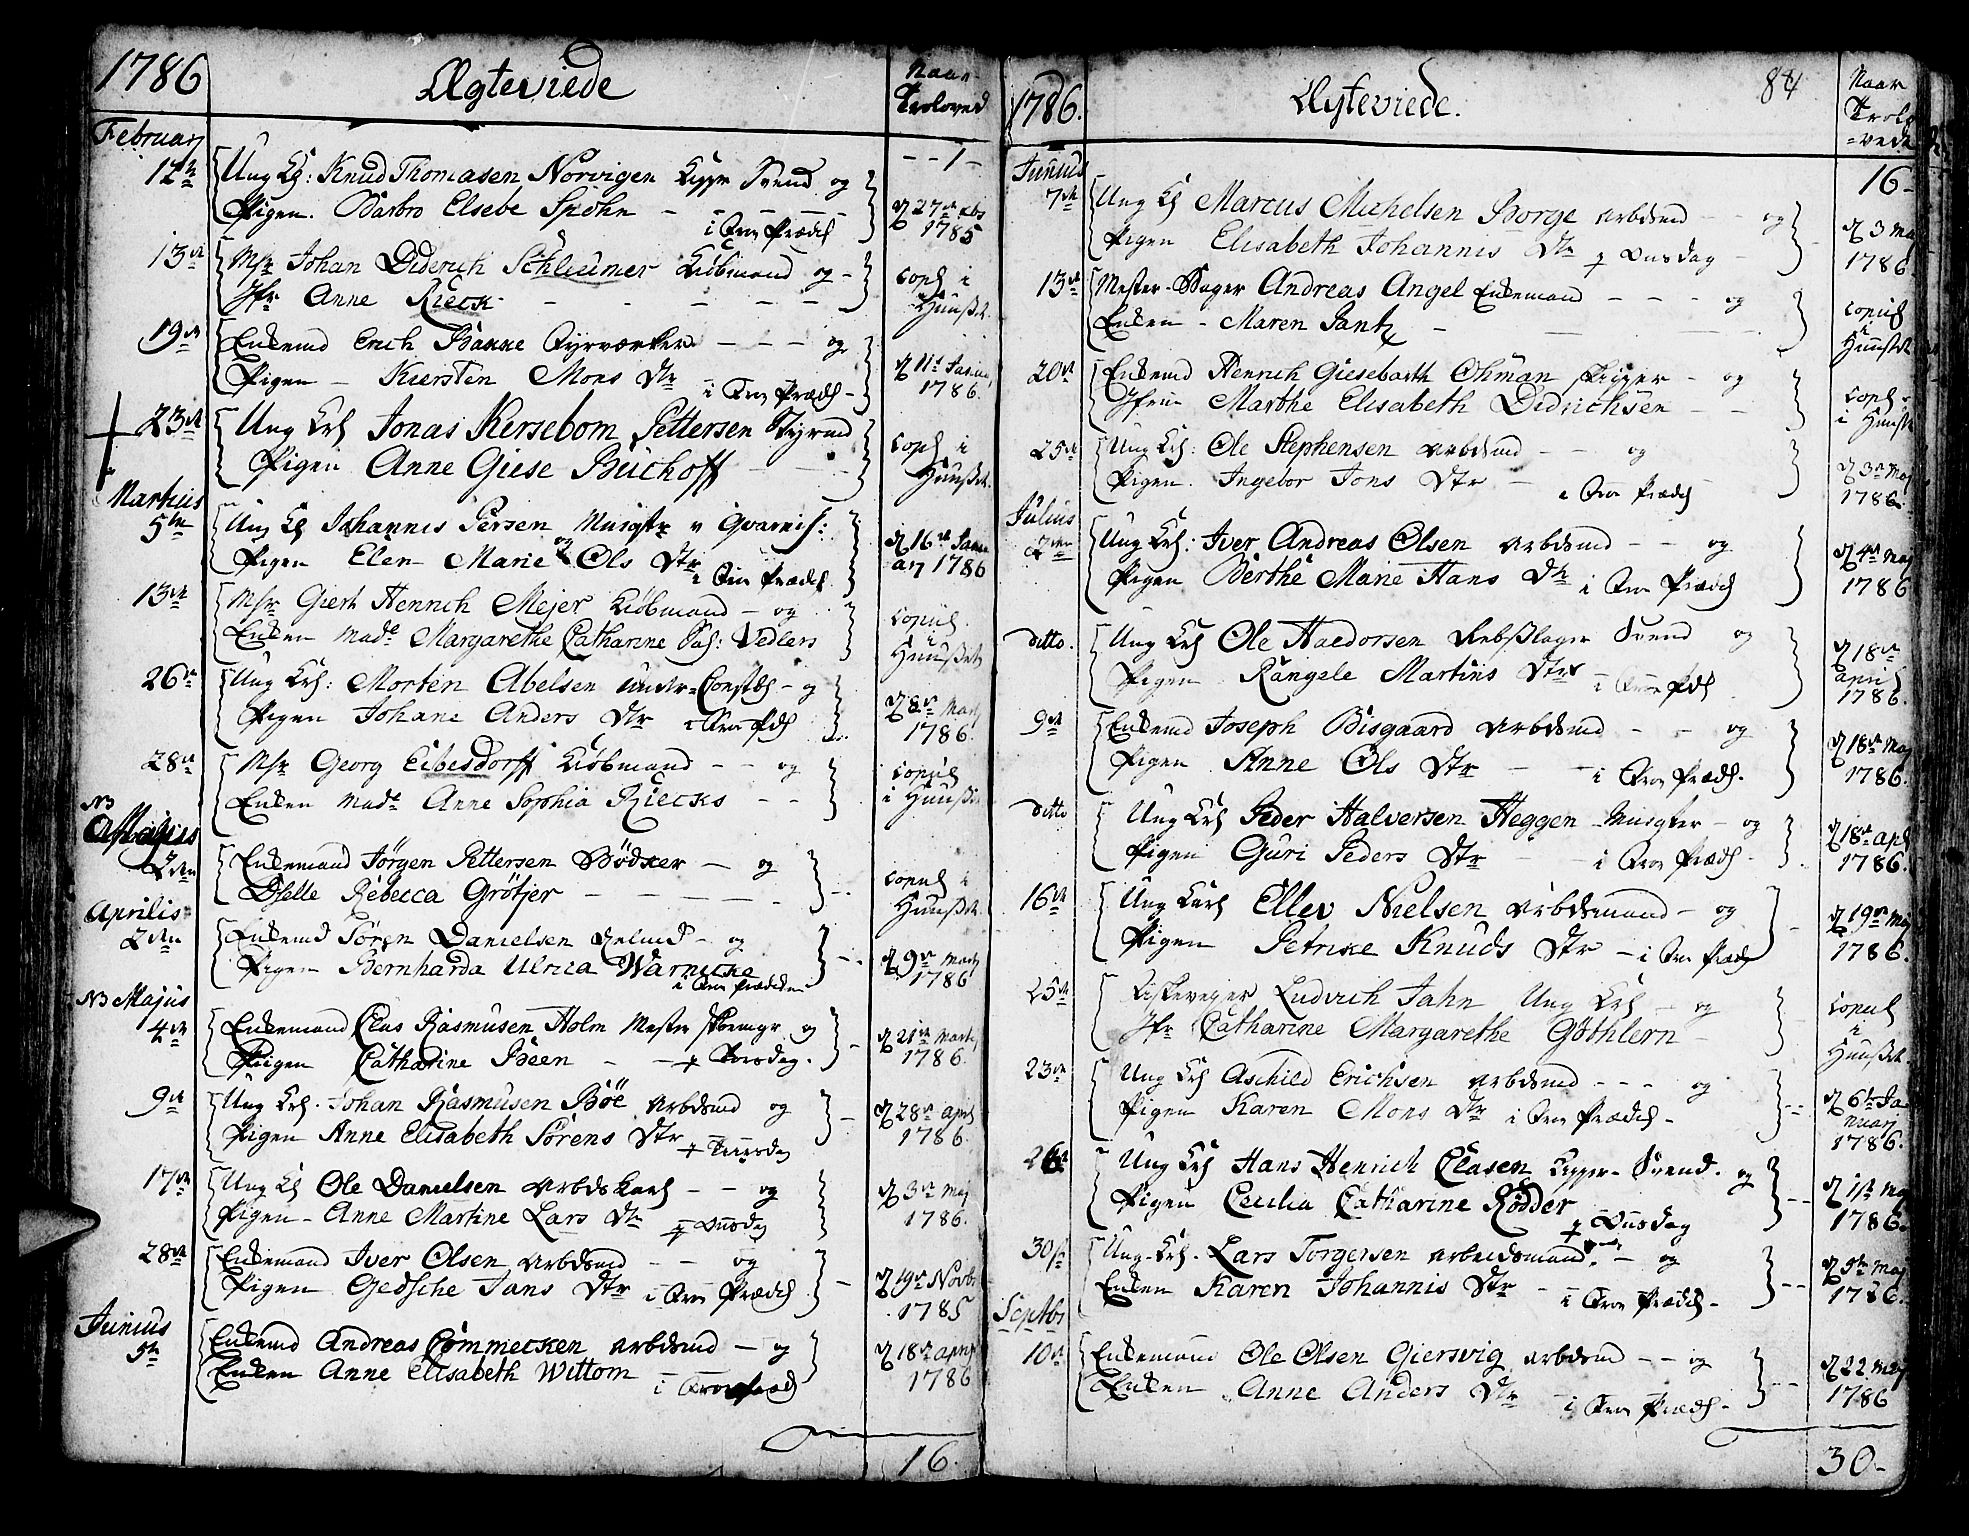 1786 Ægteviede Naar Troloved
Februarj - - 1 -
12te Ung Kl: Knud Thomasen Norvigen Svend og
Pigen. Barbro Elsebe Spöhn - i Præd d 27de
1785
13de Msr Johan Diderich Schleümer Kiöbmand og -
Jfr Anne Rieck - - - - - - cop i Huuset
19de Enkemd Erich Banne Fyrværker - - - og
Pigen - Kiersten Mons Dtr i Præd - d 11te
1786.
23de Ung Krl Jonas Kersebom Pettersen Styrmd
Pigen Anne Giese Büchoff - - - cop i Huuset
Martius
5te Ung Kl Johannis Persen Musqtr v Guarnis: og
Pigen Elen Marie Ols Dtr i Præd d 16de 1786
13de Msr Giert Henrich Mejer Kiöbmand - og
Enken Made Margarethe Catharine Sal: Vedlers copul. i Huuset
26de Ung Krl: Morten Abelsen under-Constab - og
Pigen Johane Anders Dtr i d 8de Martj
1786.
28de Msr Georg Eibesdorff Kiöbmand - - og
Enken Made Anne Sophia Riecks - - copul i Huuset
NB
2den Enkemand Jörgen Pettersen Bödker - og
Dselle Rebecca Grötjer - - - - copul i Huuset
Aprilis
2den Enkemd Sören Danielsen - og
Pigen Bernharda Ulrica Warnicke i d 9de Martj
1786
NB Majus
4de Enkemand Clas Rasmusen Holm Mester Skoemgr og
Pigen Catharine Been - - Torsdag. d 21de Martj
1786.
9de Ung Krl. Johan Rasmusen Böe Arbdsmd og
Pigen Anne Elisabeth Sörens Dtr Tiirsdag d 28de April
1786.
17de Ung Kl Ole Danielsen Arbds Karl - - og
Pigen - Anne Martine Lars Dtr Onsdag d 3de Maj
1786.
28de Enkemand Iver Olsen Arbdsmd - - og
Pigen Gedsche Jans Dtr i Præd d 19de Novbr
1785
Junius
5te Enkemd Andreas Cömmecken Arbdsmd - og
Enken Anne Elisabeth Wittom i d 18de April
1786
16.
1786. Ægteviede. 84 Naar Trolo=vede
Junius 16-
7de Ung Kl Marcus Michelsen Borge Arbdsmd - - og
Pigen Elisabeth Johannis Dtr Onsdag - d 3 Maj
1786
13de Mester Bager Andreas Angel Enkemand - - - og
Enken - Maren Jantz - copul i Huuset
20de Enkemd Henrich Giesebarth Ohman Skipper - og
Jfru Marthe Elisabeth Didrichsen - - cop i Huuset
25de Ung Krl: Ole Stephensen Arbdsmd - - og
Pigen. Ingebor Jons Dtr - i Præd d 3de Maj
1786.
Julius
2den Ung Krl: Iver Andreas Olsen Arbdsmd - - og
Pigen Berthe Marie Hans Dtr i Præd d 4de Maj
1786
ditto. Ung Krl Ole Haldorsen Rebslager Svend og
Pigen Rangele Martins Dtr i d 18de
April
1786.
9de Enkemd Joseph Bisgaard Arbdsmd - - og
Pigen Anne Ols Dtr - - i Præd. d 18de Maj
1786.
ditto Ung Krl Peder Halversen Heggen Musqter - og
Pigen Guri Peders Dtr - - i Præd - d 18de April
1786.
16de Ung Karl Ellev Nielsen Arbdsmand - og
Pigen Petrike Knuds Dtr - i Præd d 19de Maj
1786.
25de Ludvich Jahn Ung Krl - og
Jfr Catharine Margarethe Göthlern - copul i Huuset.
23de Ung Krl Aschild Erichsen Arbdsmd - - - og
Pigen Karen Mons Dtr i Præd - d 6te Januarj
1786.
26de Ung Krl Hans Henrich Clasen Svend. og
Pigen Cecilia Catharine Rödder Onsdag d 1ste Maj
1786.
30te Ung Krl. Lars Torgersen Arbeidsmand - og
Enken Karen Johannis Dtr - i Præd - d 5te Maj
1786.
Septbr
10de Enkemand Ole Olsen Giersvig Arbdsmd - - og
Enken Anne Anders Dtr - i Præd - d 22 Maj
1786
30-